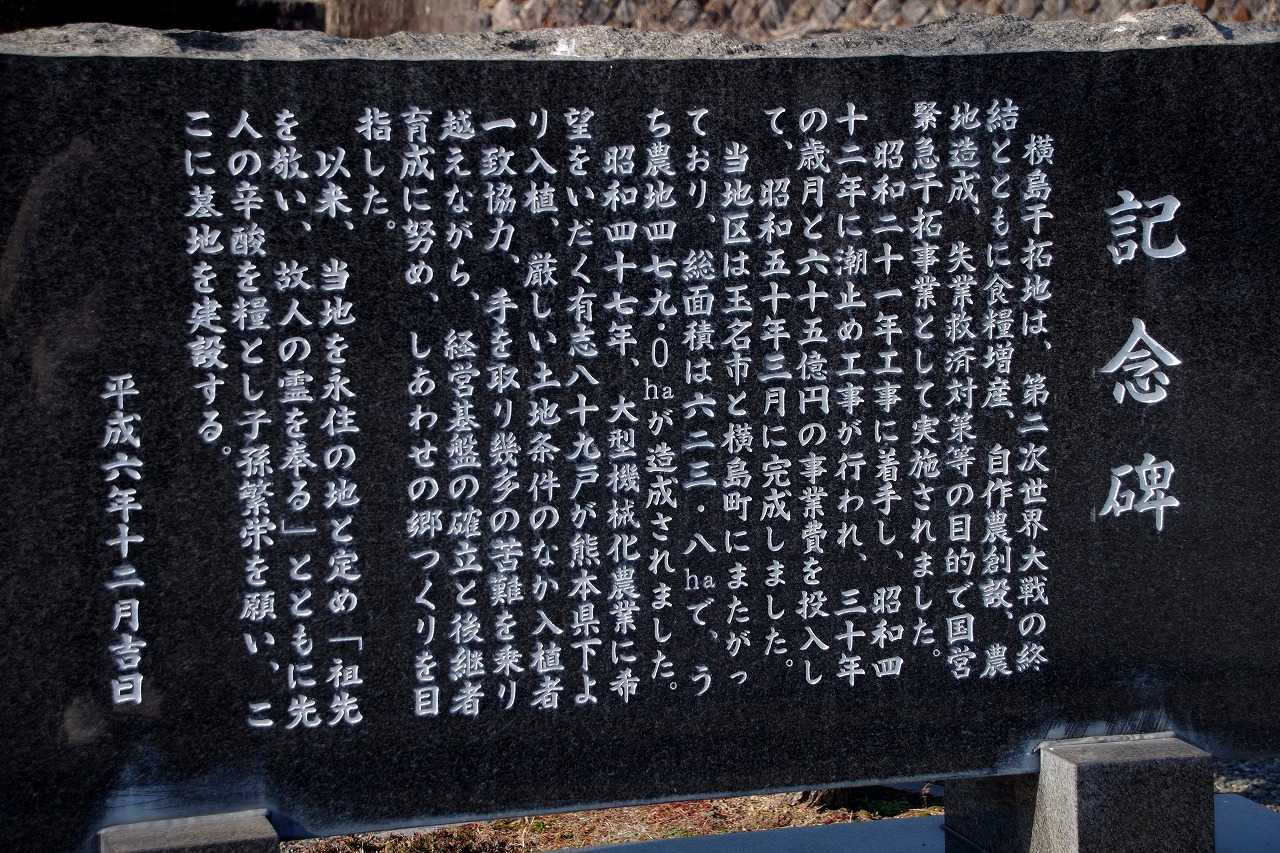 記念碑
横島干拓地は、第二次世界大戦の終
結とともに食糧増産、自作農創設、農
地造成、失業救済対策等の目的で国営
緊急干拓事業として実施されました。
昭和二十一年工事に着手し、昭和四
十二年に潮止め工事が行われ、三十年
の歳月と六十五億円の事業費を投入し
て、昭和五十年三月に完成しました。
当地区は玉名市と横島町にまたがっ
ており、総面積は六二三・八haで、う
ち農地四七九・0haが造成されました。
昭和四十七年、大型機械化農業に希
望をいだく有志八十九戸が熊本県下よ
り入植、厳しい土地条件のなか入植者
一致協力、手を取り幾多の苦難を乗り
越えながら、経営基盤の確立と後継者
育成に努め、しあわせの郷つくりを目
指した。
以来、当地を永住の地と定め「祖先
を敬い、故人の霊を奉る」とともに先
人の辛酸を糧とし子孫繁栄を願い、こ
こに墓地を建設する。
平成六年十二月吉日